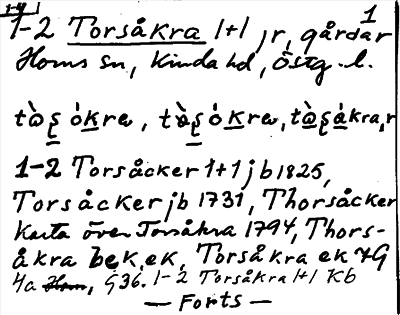 1
1-2 Torsåkra 1+1 jr, gårdar
Horns sn, Kinda hd, Östg. l.
1-2 Torsåcker 1+1 jb 1825,
Torsåcker jb 1731, Thorsåcker
Karta över Torsåkra 1794, Thors-
åkra bek, ek, Torsåkra ek
4a Horn, G36. 1-2 Torsåkra 1+1 Kb
— Forts —